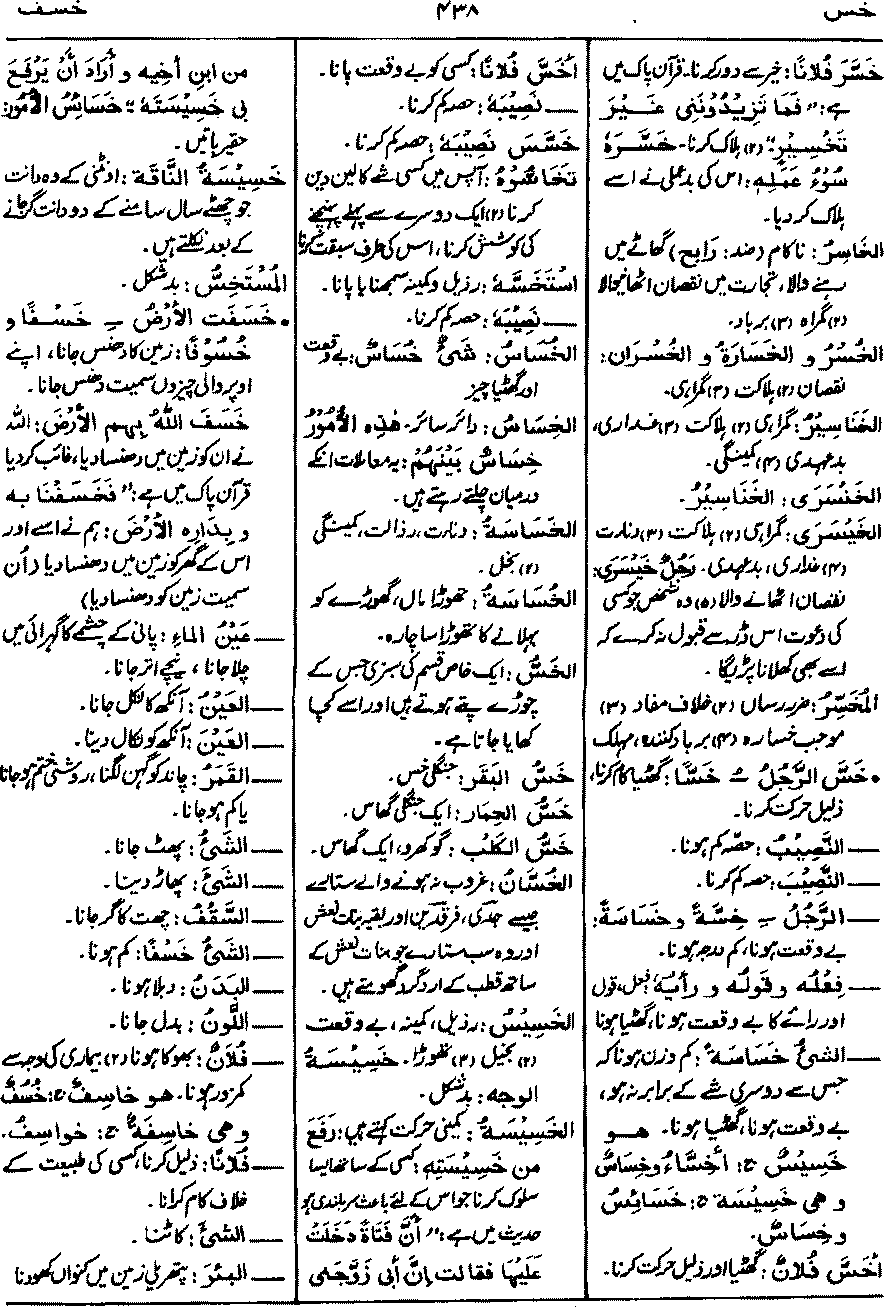 خس
۴۳۸
خسف
خَسَّرَ فُلَانًا: خیر سے دور کرنا۔ قرآن پاک میں
ہے: "فَمَا تَزِيْدُوْنَنِي غَيْرَ
تَخْسِيْرٍ" (۲) ہلاک کرنا۔ خَسَّرَهُ
سُوْءُ عَمَلِهٖ: اس کی بدعملی نے اسے
ہلاک کر دیا۔
الخَاسِرُ: ناکام (ضد: رَابِح) گھاٹے میں
رہنے والا، تجارت میں نقصان اٹھانیوالا
(۲) گمراہ (۳) برباد۔
الخُسْرُ و الخَسَارَةُ و الخُسْرَان:
نقصان (۲) ہلاکت (۳) گمراہی۔
الخَنَاسِيْرُ: گمراہی (۲) ہلاکت (۳) غداری،
بدعہدی (۴) کمینگی۔
الخَنْسَرَى: الخَنَاسِيْرُ۔
الخَيْسَرَى: گمراہی (۲) ہلاکت (۳) دنارت
(۴) غداری، بدعہدی۔ رَجُلٌ خَيْسَرَى:
نقصان اٹھانے والا (۵) وہ شخص جو کسی
کی دعوت اس ڈر سے قبول نہ کرے کہ
اسے بھی کھلانا پڑیگا۔
المُخَسِّرُ: ضرر رساں (۲) خلاف مفاد (۳)
موجب خسارہ (۴) برباد کنندہ، مہلک
• خَسَّ الرَّجُلُ ـُ خَسًّا: گھٹیا کام کرنا،
ذلیل حرکت کرنا۔
ــ النَّصِيْبُ: حصّہ کم ہونا۔
ــ النَّصِيْبَ: حصہ کم کرنا۔
ــ الرَّجُلُ ـِ خِسَّةً و خَسَاسَةً:
بے وقعت ہونا، کم درجہ ہونا۔
ــ فِعْلُه و قَوْلُه و رَأْيُه: فعل، قول
اور رائے کا بے وقعت ہونا، گھٹیا ہونا
ــ الشئُ خَسَاسَةً: کم وزن ہونا کہ
جس سے دوسری شے کے برابر نہ ہو،
بے وقعت ہونا، گھٹیا ہونا۔ هو
خَسِيْسٌ ج: أَخِسَّاءُ و خِسَاسٌ
و هی خَسِيْسَة ج: خَسَائِسُ
و خِسَاسٌ۔
أَخَسَّ فُلَانٌ: گھٹیا اور ذلیل حرکت کرنا۔
أَخَسَّ فُلَانًا: کسی کو بے وقعت پانا۔
ــ نَصِيْبَهُ: حصہ کم کرنا۔
خَسَّسَ نَصِيْبَهُ: حصہ کم کرنا۔
تَخَاسُّوْهُ: آپس میں کسی شے کا لین دین
کرنا (۲) ایک دوسرے سے پہلے پہنچنے
کی کوشش کرنا، اس کی طرف سبقت کرنا
اسْتَخَسَّهُ: رذیل و کمینہ سمجھنا یا پانا۔
ــ نَصِيْبَهُ: حصہ کم کرنا۔
الخُسَاسُ: شَیْءٌ خُسَاسٌ: بے وقعت
اور گھٹیا چیز
الخِسَاسُ: دائر سائر۔ هٰذِهِ الأُمُوْرُ
خِسَاسٌ بَيْنَهُمْ: یہ معاملات انکے
درمیان چلتے رہتے ہیں۔
الخَسَاسَةُ: دنارت، رذالت، کمینگی
(۲) بخل۔
الخُسَاسَةُ: تھوڑا مال، گھوڑے کو
بہلانے کا تھوڑا سا چارہ۔
الخَسُّ: ایک خاص قسم کی سبزی جس کے
چوڑے پتے ہوتے ہیں اور اسے کچا
کھایا جاتا ہے۔
خَسُّ البَقَر: جنگلی خس۔
خَسُّ الحِمَار: ایک جنگلی گھاس۔
خَسُّ الكَلْب: گوکھرو، ایک گھاس۔
الخُسَّانُ: غروب نہ ہونے والے ستارے
جیسے جدی، فرقدین اور بقیہ بنات نعش
اور وہ سب ستارے جو بنات نعش کے
ساتھ قطب کے ارد گرد گھومتے ہیں۔
الخَسِيْسُ: رذیل، کمینہ، بے وقعت
(۲) بخیل (۳) تھوڑا۔ خَسِيْسَةُ
الوجه: بدشکل۔
الخَسِيْسَةُ: کمینی حرکت کہتے ہیں: رَفَعَ
من خَسِيْسَتِهِ: کسی کے ساتھ ایسا
سلوک کرنا جو اس کے لئے باعث سربلندی ہو
حدیث میں ہے: "أَنَّ فَتَاةً دَخَلَتْ
عَلَيْهَا فقالت إِنَّ أَبي زَوَّجَنِي
من ابنِ أخِيه و أَرَادَ أَنْ يَرْفَعَ
بِي خَسِيْسَتَهُ" خَسَائِسُ الأُمُوْرِ:
حقیر باتیں۔
خَسِيْسَةُ النَّاقَةِ: اونٹنی کے وہ دانت
جو چھٹے سال سامنے کے دو دانت گر جانے
کے بعد نکلتے ہیں۔
المُسْتَخِسُّ: بدشکل۔
• خَسَفَت الأَرْضُ ـِ خَسْفًا و
خُسُوْفًا: زمین کا دھنس جانا، اپنے
اوپر والی چیزوں سمیت دھنس جانا۔
خَسَفَ اللّٰهُ بِهِم الأَرْضَ: اللہ
نے ان کو زمین میں دھنسا دیا، غائب کردیا
قرآن پاک میں ہے: "فَخَسَفْنَا بِه
و بِدَارِهِ الأَرْضَ: ہم نے اسے اور
اس کے گھر کو زمین میں دھنسا دیا (اُن
سمیت زمین کو دھنسا دیا)
ــ عَيْنُ الماءِ: پانی کے چشمے کا گہرائی میں
چلا جانا، نیچے اتر جانا۔
ــ العَيْنُ: آنکھ کا نکل جانا۔
ــ العَيْنَ: آنکھ کو نکال دینا۔
ــ القَمَرُ: چاند کو گہن لگنا، روشنی ختم ہو جانا
یا کم ہو جانا۔
ــ الشَّئُ: پھٹ جانا۔
ــ الشَّئَ: پھاڑ دینا۔
ــ السَّقْفُ: چھت کا گر جانا۔
ــ الشَّئُ خَسْفًا: کم ہونا۔
ــ البَدَنُ: دبلا ہونا۔
ــ اللَّوْنُ: بدل جانا۔
ــ فُلَانٌ: بھوکا ہونا (۲) بیماری کی وجہ سے
کمزور ہونا۔ هو خاسِفٌ ج: خُسُفٌ
و هی خاسِفَةٌ ج: خواسِف۔
ــ فُلَانًا: ذلیل کرنا، کسی کی طبیعت کے
خلاف کام کرانا۔
ــ الشئَ: کاٹنا۔
ــ البِئْرَ: پتھریلی زمین میں کنواں کھودنا